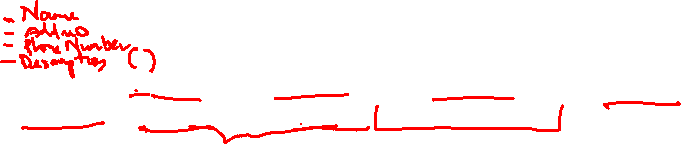 - Name
- Phone Number
- Description ( )